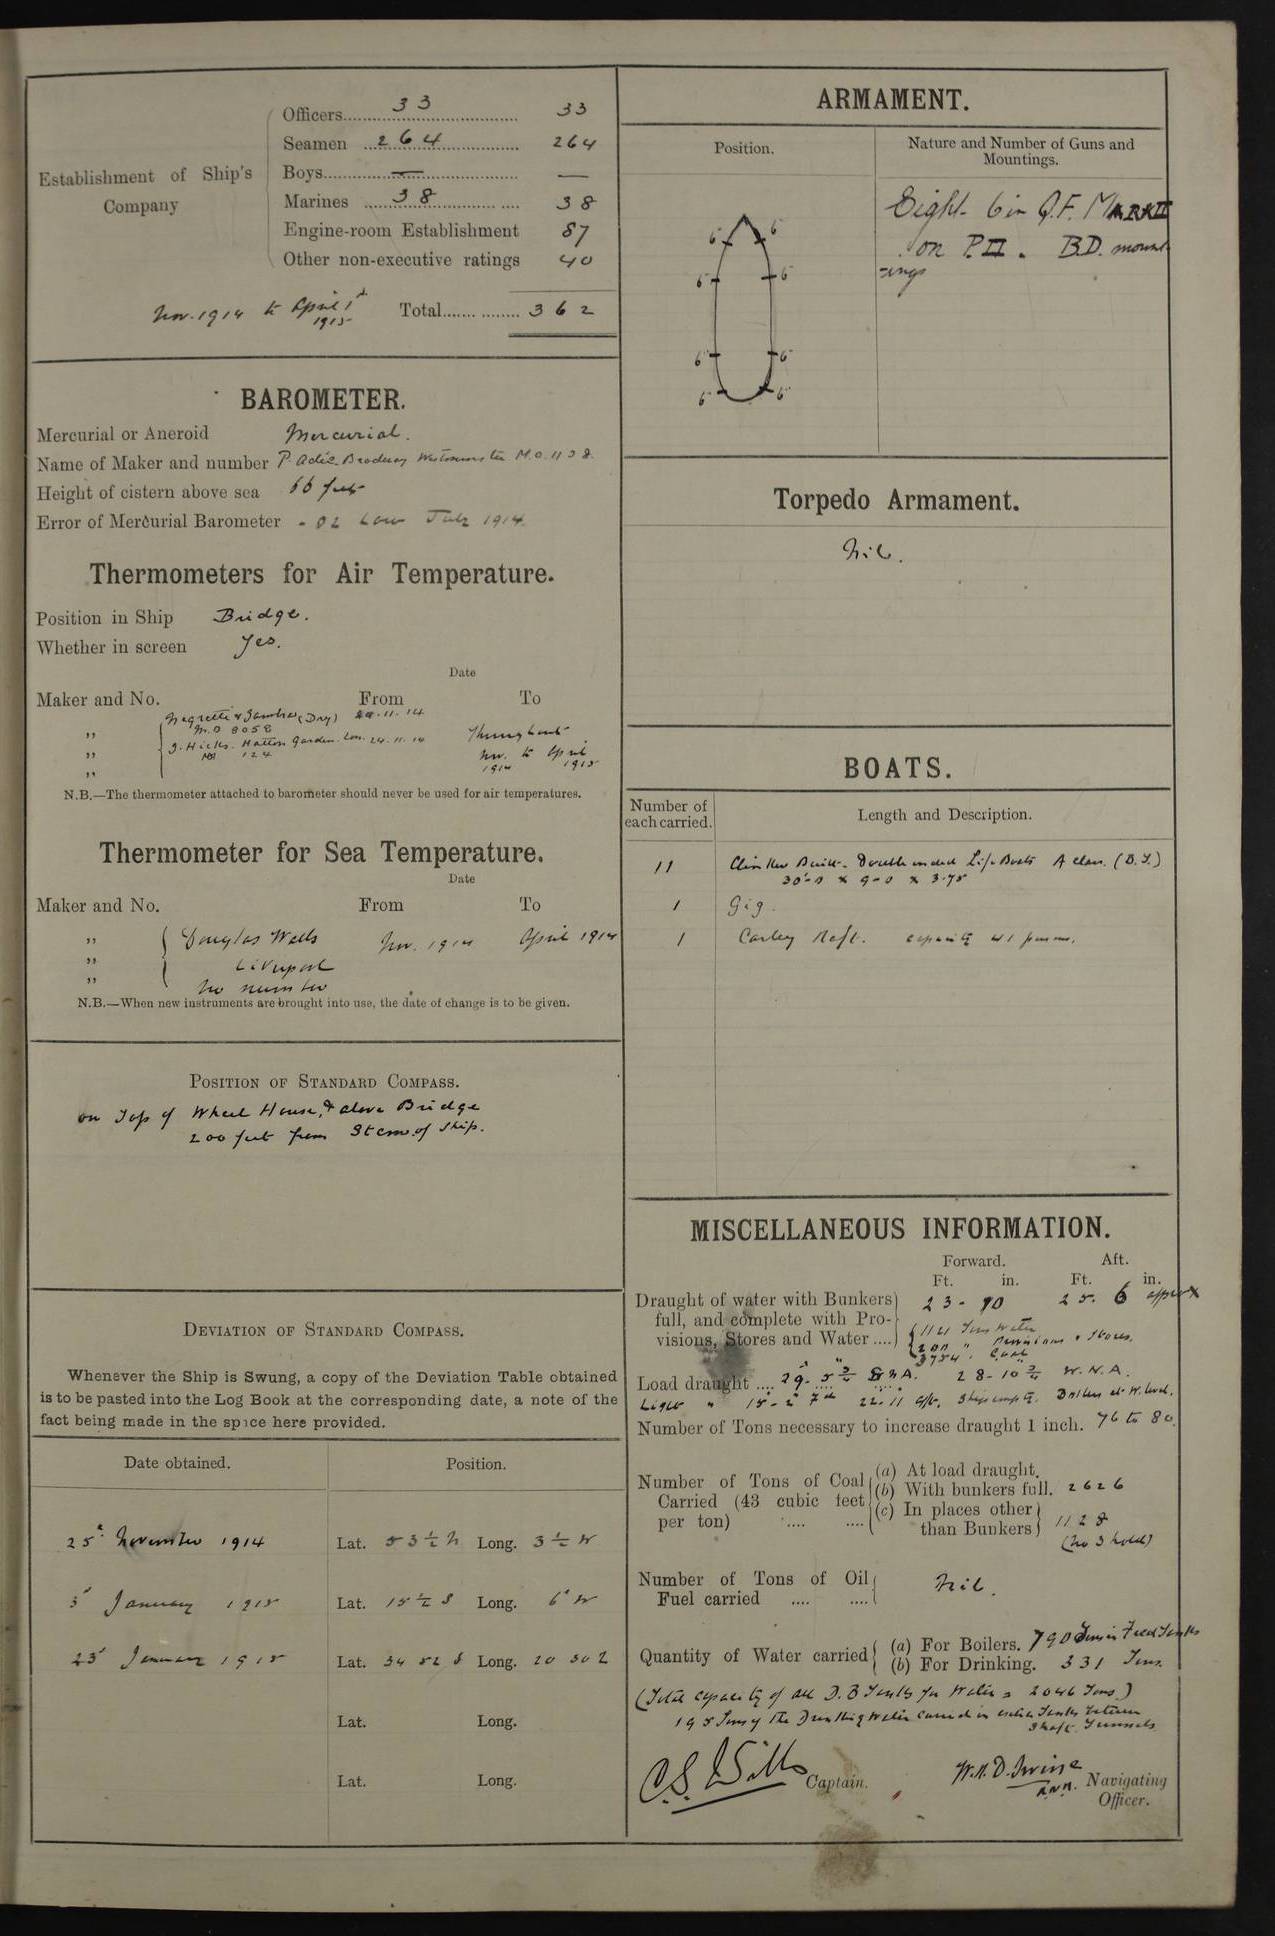 Establishment of Ship's Company
Officers.... 33 33
Seamen .... 264 264
Boys.... — —
Marines .... 38 38
Engine-room Establishment 87
Other non-executive ratings 40
Nov. 1914 to April 1st 1915 Total.... 362
BAROMETER.
Mercurial or Aneroid Mercurial.
Name of Maker and number P. Adie Broadway Westminster M.O. 1138
Height of cistern above sea 66 feet
Error of Mercurial Barometer - 02 Low July 1914
Thermometers for Air Temperature.
Position in Ship Bridge.
Whether in screen Yes.
Date
Maker and No. From To
Negretti & Zambra (Dry) 24.11.14
„ M.O 8058 Throughout
„ J. Hicks. Hatton Garden. Lon. 24.11.14 Nov. to April
„ 124 1914 1915
N.B.—The thermometer attached to barometer should never be used for air temperatures.
Thermometer for Sea Temperature.
Date
Maker and No. From To
„ Douglas Wells Nov. 1914 April 1914
„ Liverpool
„ No number
N.B.—When new instruments are brought into use, the date of change is to be given.
POSITION OF STANDARD COMPASS.
on Top of Wheel House, & above Bridge
200 feet from Stem of Ship.
DEVIATION OF STANDARD COMPASS.
Whenever the Ship is Swung, a copy of the Deviation Table obtained
is to be pasted into the Log Book at the corresponding date, a note of the
fact being made in the space here provided.
Date obtained. Position.
25th November 1914 Lat. 53½ N Long. 3½ W
January 1915 Lat. 15½ S Long. 6 W
23 January 1915 Lat. 34 52 S Long. 20 30 E
Lat. Long.
Lat. Long.
ARMAMENT.
Position. Nature and Number of Guns and Mountings.
6 6
6 6
6 6
6 6
Eight 6 in Q.F. MARK II
on P.III. B.D. mount-
ings
Torpedo Armament.
Nil.
BOATS.
Number of each carried. Length and Description.
11 Clinker Built Double ended Life Boats A class. (B.T.)
30-0 x 9-0 x 3.75
1 Gig.
1 Carley Raft. capacity 41 persons.
MISCELLANEOUS INFORMATION.
Forward. Aft.
Ft. in. Ft. in.
Draught of water with Bunkers full, and complete with Provisions, Stores and Water .... 23-10 25. 6 approx
1121 Tons Water
200 " Provisions & Stores.
3754. Coal
Load draught .... 29-5¾ 28-10¾ W.N.A.
Light " 15-2 22-11 aft. Ship empty. Boilers at W. level.
Number of Tons necessary to increase draught 1 inch. 76 to 80.
Number of Tons of Coal Carried (43 cubic feet per ton) ....
(a) At load draught.
(b) With bunkers full. 2626
(c) In places other than Bunkers 1128
(No 3 hold)
Number of Tons of Oil Fuel carried .... Nil.
Quantity of Water carried
(a) For Boilers. 790 Tons in Feed Tanks
(b) For Drinking. 331 Tons.
(Total capacity of all D.B Tanks for Water = 2046 Tons.)
195 Tons of the Drinking Water carried in Tanks between
Shaft Tunnels
Captain.
W.N.D. Irvine
R.N.R. Navigating Officer.